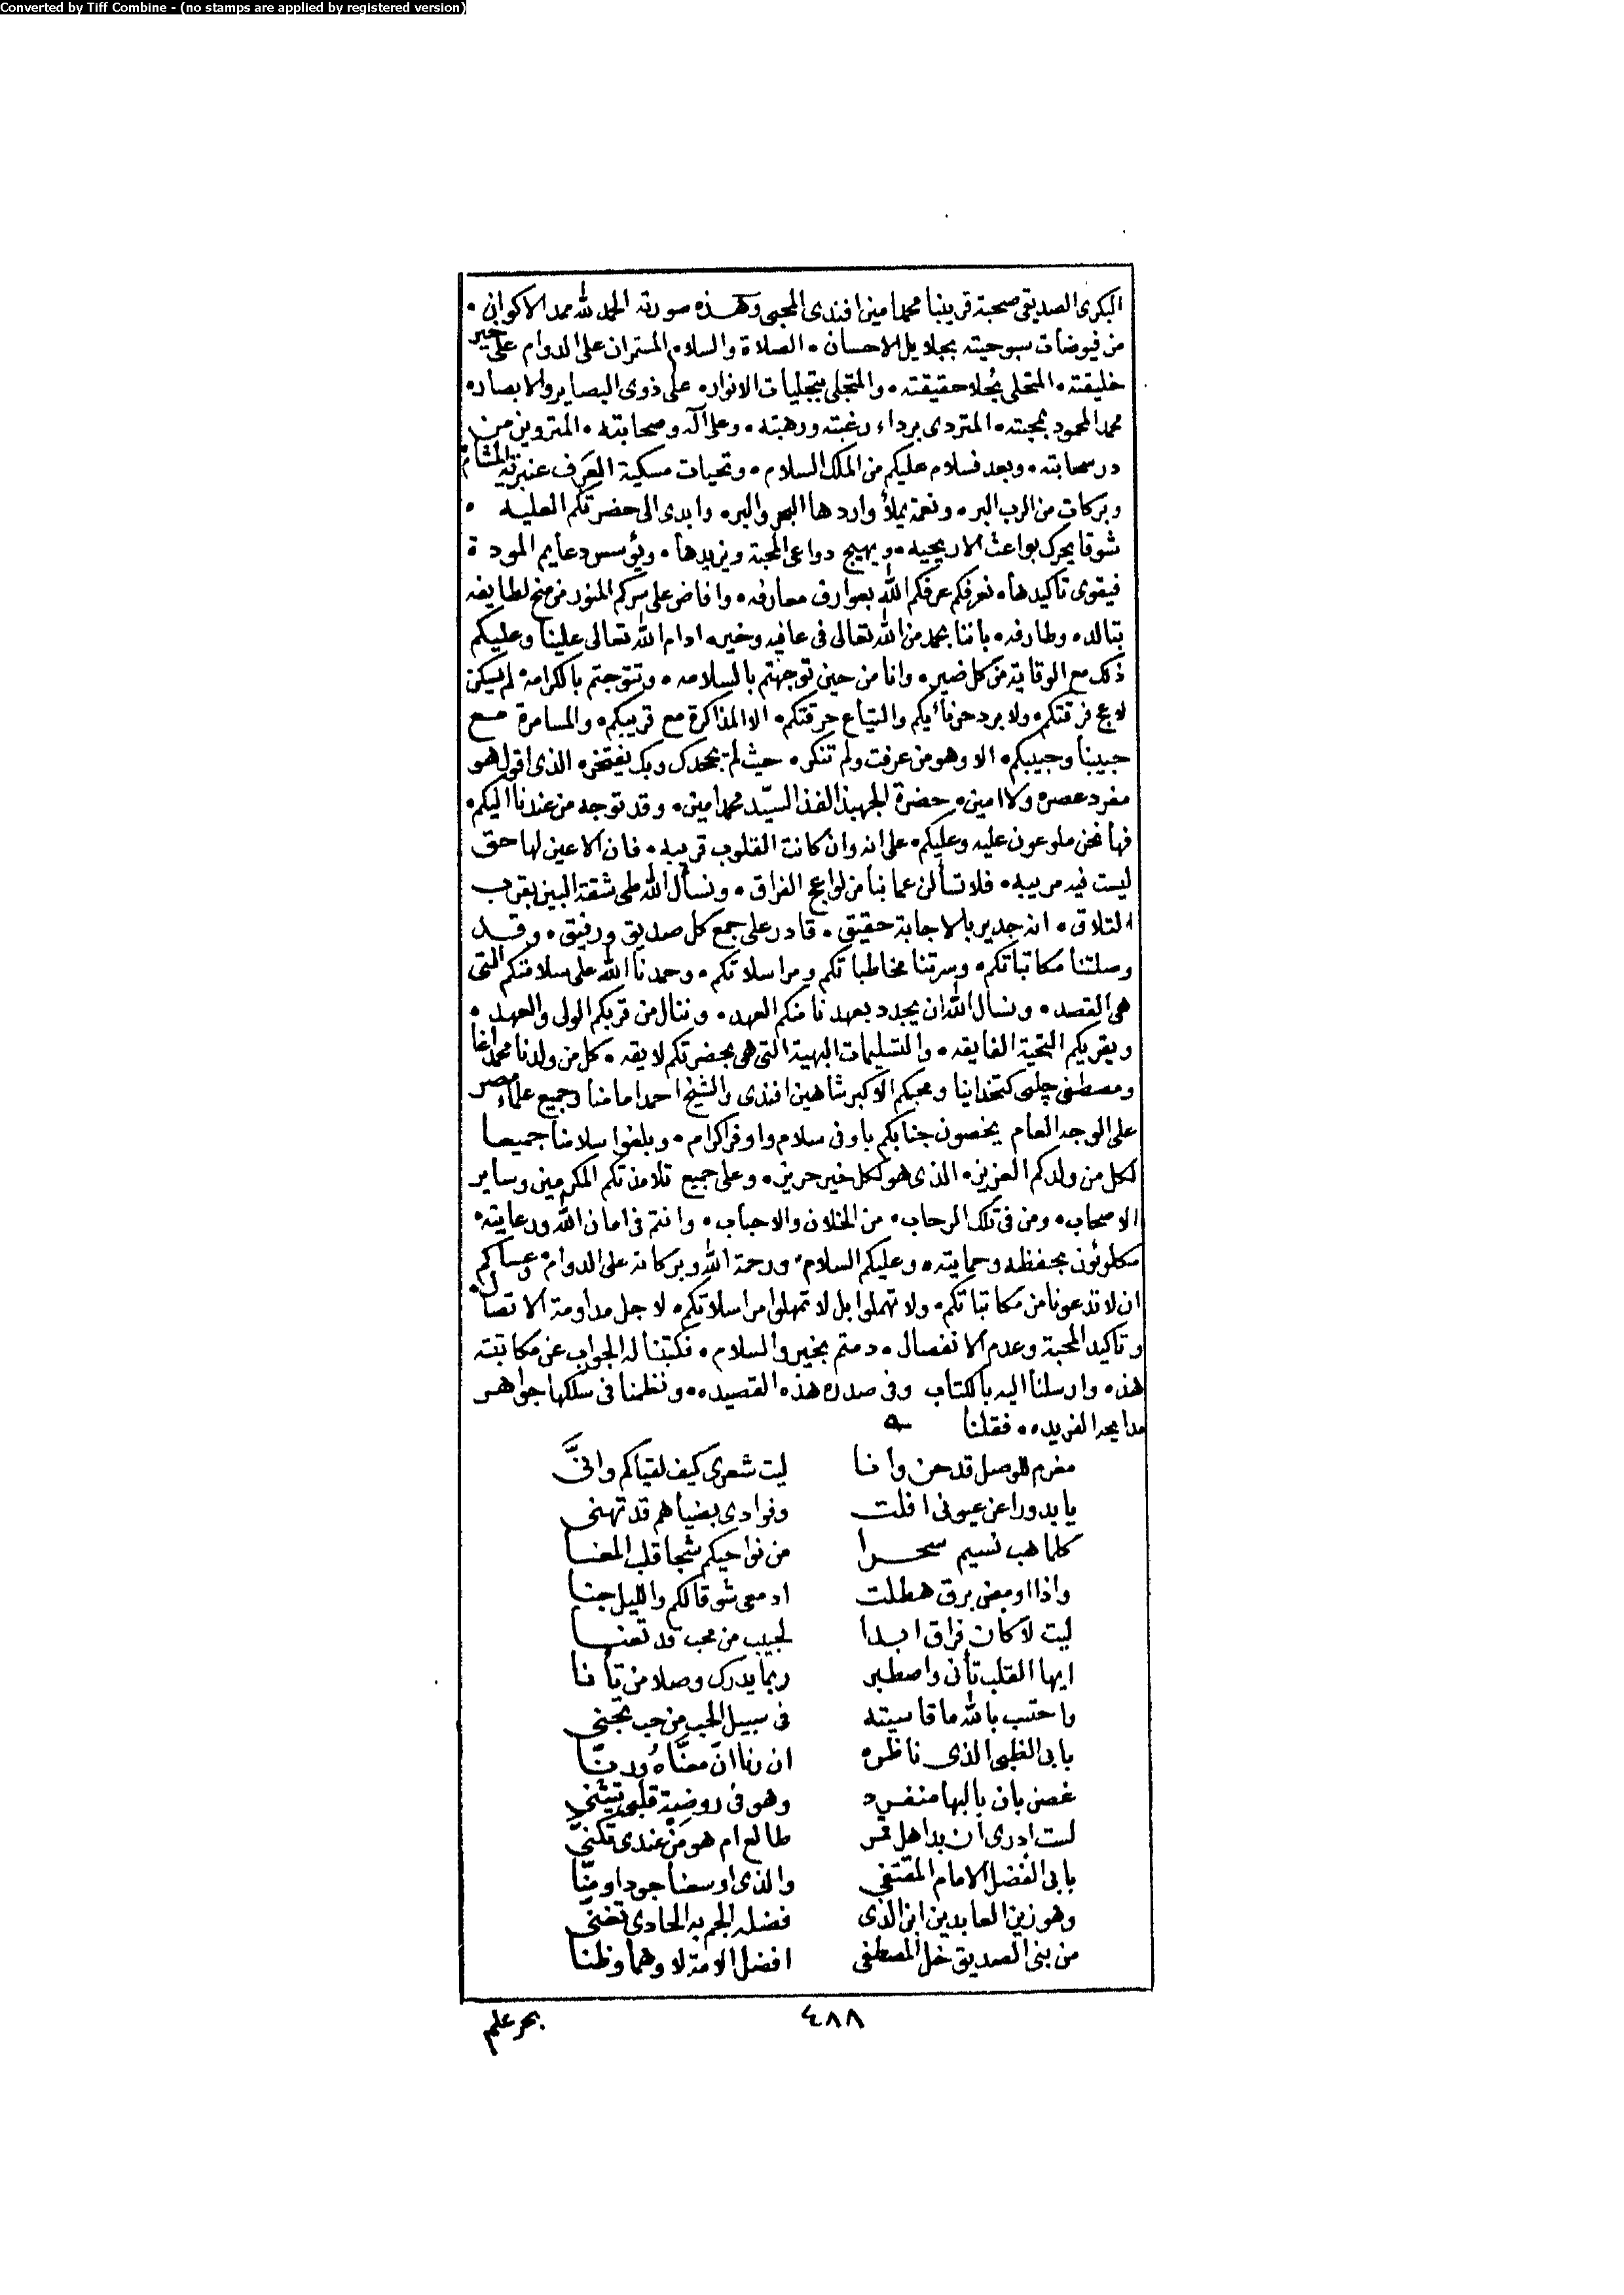 Converted by Tiff Combine - (no stamps are applied by registered version)
البكرى الصديقى صحبة قريبنا محمد امين افندى المحبى وهذه صورته الحمد لله ممد الاكوان
من فيوضات سبوحيته بجلايل الاحسان . الصلاة والسلام المستمران على الدوام على خير
خليقته . المتحلى بحلا حقيقته . والمتجلى بتجليات الانوار . على ذوى البصاير والابصار .
محمد المحمود بمحبته . المتردى برداء رغبته ورهبته . وعلى آله وصحابته . المتروين من
در سحابته . وبعد فسلام عليكم من الملك السلام . وتحيات مسكية العَرف عنبرية المشام
وبركات من الرب البر . ونعمة يملأ واردها البحر والبر . وابدى الى حضرتكم العليه .
شوقا يحرك بواعث الاريحيه . ويهيج دواعى المحبة ويزيدها . ويؤسس دعايم المودة
فيقوى تاكيدها . نعرفكم عرفكم الله بعوارف معارفه . وافاض على سركم المنور من منح لطايفه
بتالده وطارفه . باننا بحمد من الله تعالى فى عافيه وخير . ادام الله تعالى علينا وعليكم
ذلك مع الوقاية من كل ضير . وانا من حين توجهتم بالسلامه . وتتوجتم بالكرامة . لم يسكن
لاعج فرقتكم . ولا برد حر نأيكم والتياع حرقتكم . الا المذاكرة مع قريبكم . والمسامرة مع
حبيبنا وحبيبكم . الا وهو من عرفت ولم تنكر . حيث لم يجحدك وبك يفتخر . الذى اقول هو
مفرد عصره ولا امين . حضرة الجهبذ الفذ السيّد محمد امين . وقد توجه من عندنا اليكم .
فها نحن ملوعون عليه وعليكم . على انه وان كانت القلوب قريبه . فان الاعين لها حق
ليست فيه مريبه . فلا تسألن عما بنا من لواعج الفراق . ونسأل الله طى شقة البين بقرب
التلاق . انه جدير بالاجابة حقيق . قادر على جمع كل صديق ورفيق . وقد
وصلتنا مكاتباتكم . وسرتنا مخاطباتكم ومراسلاتكم . وحمدنا الله على سلامتكم التى
هى القصد . ونسال الله ان يجدد بعهدنا منكم العهد . وننال من قربكم الولى والعهد .
ويقريكم التحية الفايقه . والتسليمات البهية التى هى بحضرتكم لايقه . كل من ولدنا محمد اغا
ومصطفى چلبى كتخداينا ومحبكم الاكبر شاهين افندى والشيخ احمد امامنا وجميع علماء مصر
على الوجه العام يخصون جنابكم باوفى سلام واوفر اكرام . وبلغوا سلامنا جميعا
لكل من ولدكم العزيز . الذى هو لكل خير حريز . وعلى جميع تلامذتكم المكرمين وساير
الاصحاب . ومن فى تلك الرحاب . من الخلان والاحباب . وانتم فى امان الله ورعايته .
مكلوئون بحفظه وحمايته . وعليكم السلام . ورحمة الله وبركاته على الدوام . وعساكم
ان لا تدعونا من مكاتباتكم . ولا تهملوا بل لا تمهلوا مراسلاتكم . لاجل مداومة الاتصال .
وتاكيد المحبة وعدم الانفصال . دمتم بخير والسلام . فكتبنا له الجواب عن مكاتبته
هذه . وارسلنا اليه بالكتاب وفى صدره هذه القصيده . ونظمنا فى سلكها جواهر
مدايحه الفريده . فقلنا
مغرم للوصل قد حن وانا ليت شعرى كيف لقياكم وانىَّ
يا بدورا عن عيونى افلت وفوادى بضياهم قد تهنى
كلما هب نسيم سحرا من نواحيكم شجا قلب المعنا
واذا اومض برق هطلت ادمعى شوقا لكم والليل جنا
ليت لا كان فراق ابدا لحبيب من محب قد تعنا
ايها القلب تأنى واصطبر ربما يدرك وصلا من تأنا
واحتسب بالله ما قاسيته فى سبيل الحب من حب تجنى
بابى الظبى الذى ناظره ان رنا انّ معنّاه ورنّا
غصن بان بالبها منفرد وهو فى روضة قلبى يتثنى
لست ادرى ان بدا هل قمر طالع ام هو مَن عندى تكنىّ
بابى الفضل الامام المقتفى والذى اوسعنا جودا ومنّا
وهو زين العابدين ابن الذى فضله الجم به الحادى تغنىّ
من بنى الصديق خل المصطفى افضل الامة لا وهما وظنا
٤٨٨
بحر علم